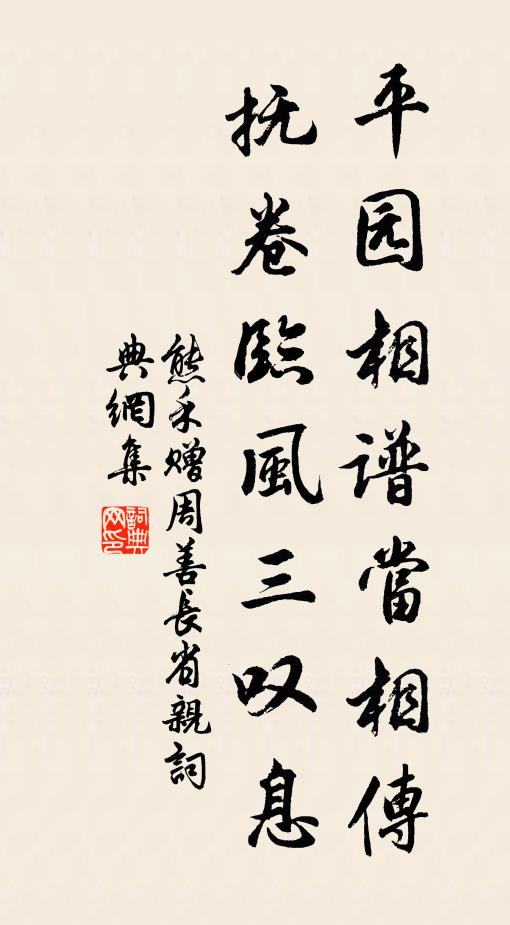 平园相谱當相傳
抚卷臨風三叹息
熊禾赠周善長省親詞
典網集
詞典網印